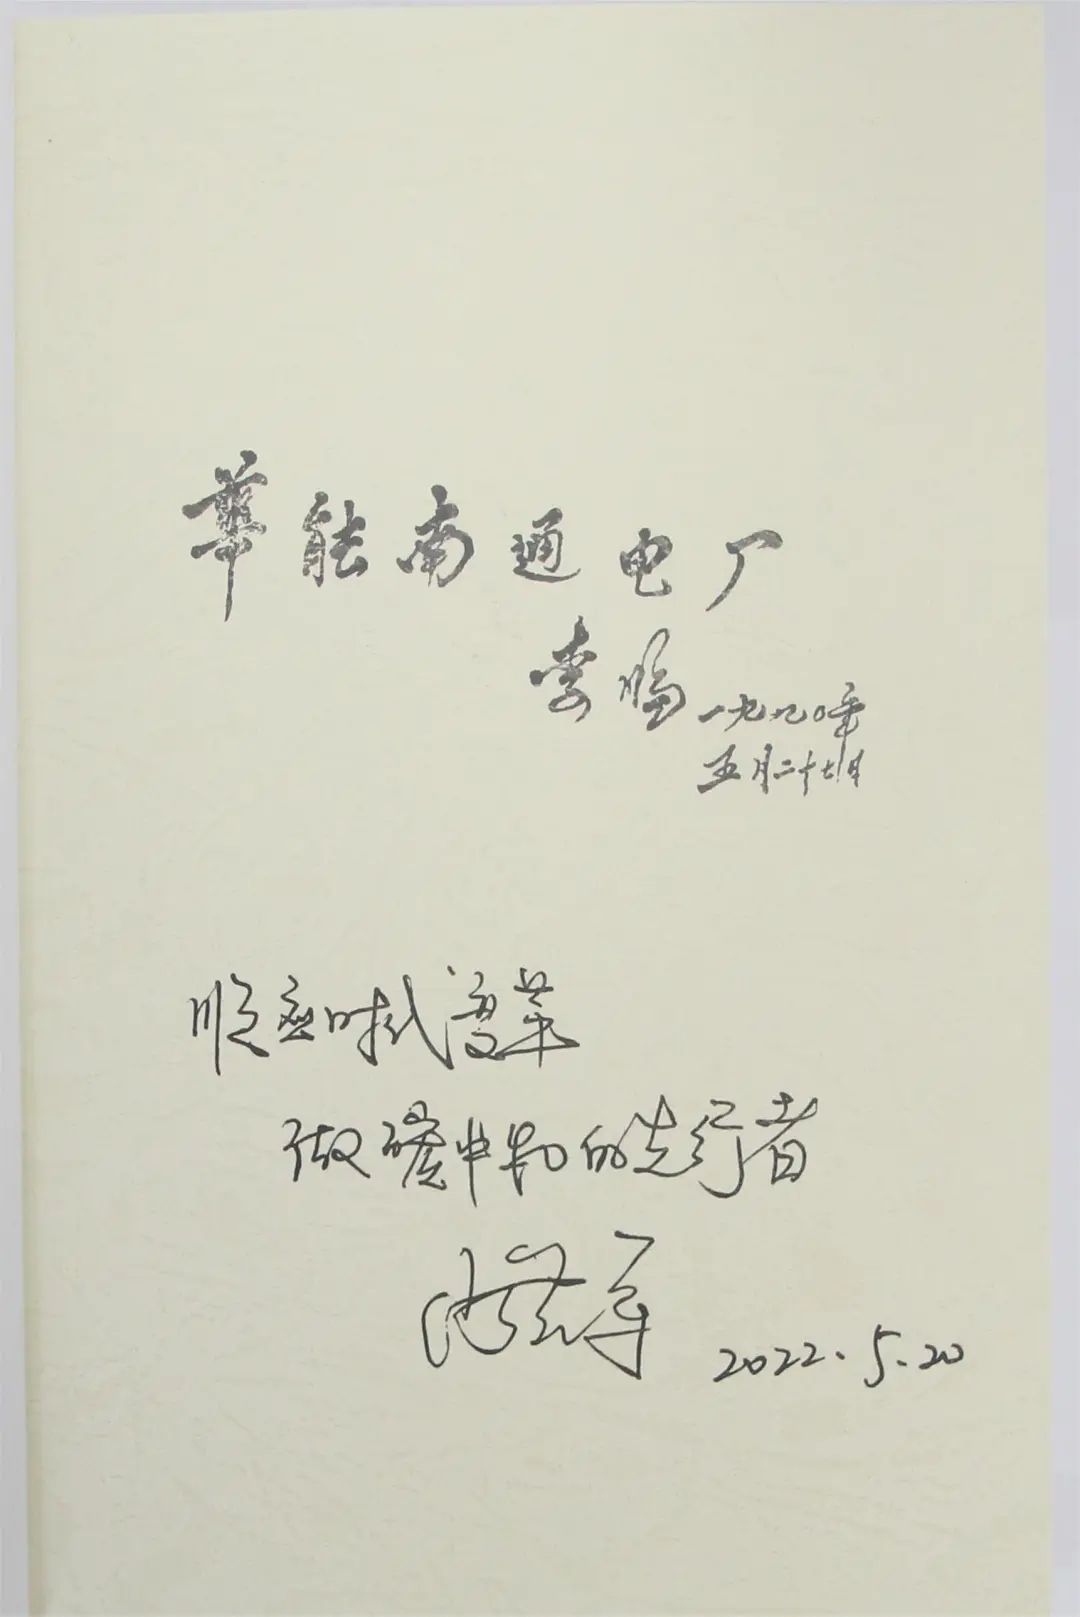 华能南通电厂
李鹏 一九九〇年
五月二十七日
顺应时代变革
做碳中和的先行者
2022.5.20